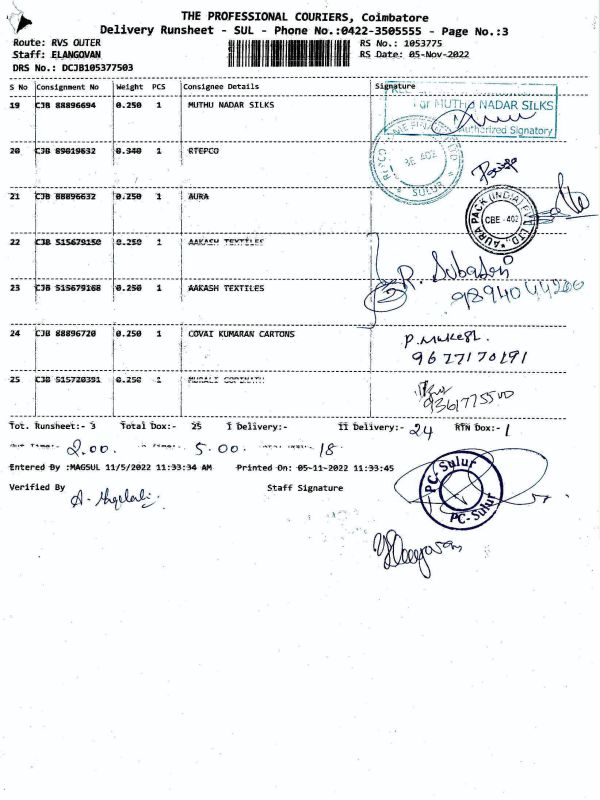 THE PROFESSIONAL COURIERS, Coimbatore
Delivery Runsheet - SUL - Phone No.:0422-3505555 - Page No.:3
Route: RVS OUTER
RS No.: 1053775
Staff: ELANGOVAN
RS Date: 05-Nov-2022
DRS No.: DCJB105377503
S No Consignment No Weight PCS Consignee Details Signature
19 CJB 88896694 0.250 1 MUTHU NADAR SILKS
For MUTHU NADAR SILKS
Authorized Signatory
20 CJB 89019632 0.340 1 RTEPCO
SULUR
21 CJB 88896632 0.250 1 AURA
AURA PACK (INDIA) PVT LTD.,
CBE - 402
22 CJB 515679150 0.250 1 AAKASH TEXTILES
23 CJB 515679168 0.250 1 AAKASH TEXTILES
24 CJB 88896720 0.250 1 COVAI KUMARAN CARTONS
P. Mukesh
9677170191
25 CJB 515720391 0.250 1 MURALI GOPINATH
Tot. Runsheet:- 3 Total Dox:- 25 I Delivery:- II Delivery:- 24 RTN Dox:- 1
Out Time:- 2.00. In Time:- 5.00. 18
Entered By :MAGSUL 11/5/2022 11:33:34 AM Printed On: 05-11-2022 11:33:45
Verified By Staff Signature
PC-Sulur
PC-Sulur